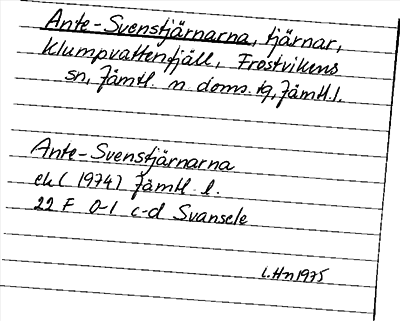 Ante-Svenstjärnarna, tjärnar,
Klumpvattenfjäll, Frostvikens
sn, Jämtl. n. doms. tg, Jämtl. l.
Ante-Svenstjärnarna
ek (1974) Jämtl. l.
22 F 0-1 c-d Svansele
L.Hn 1975